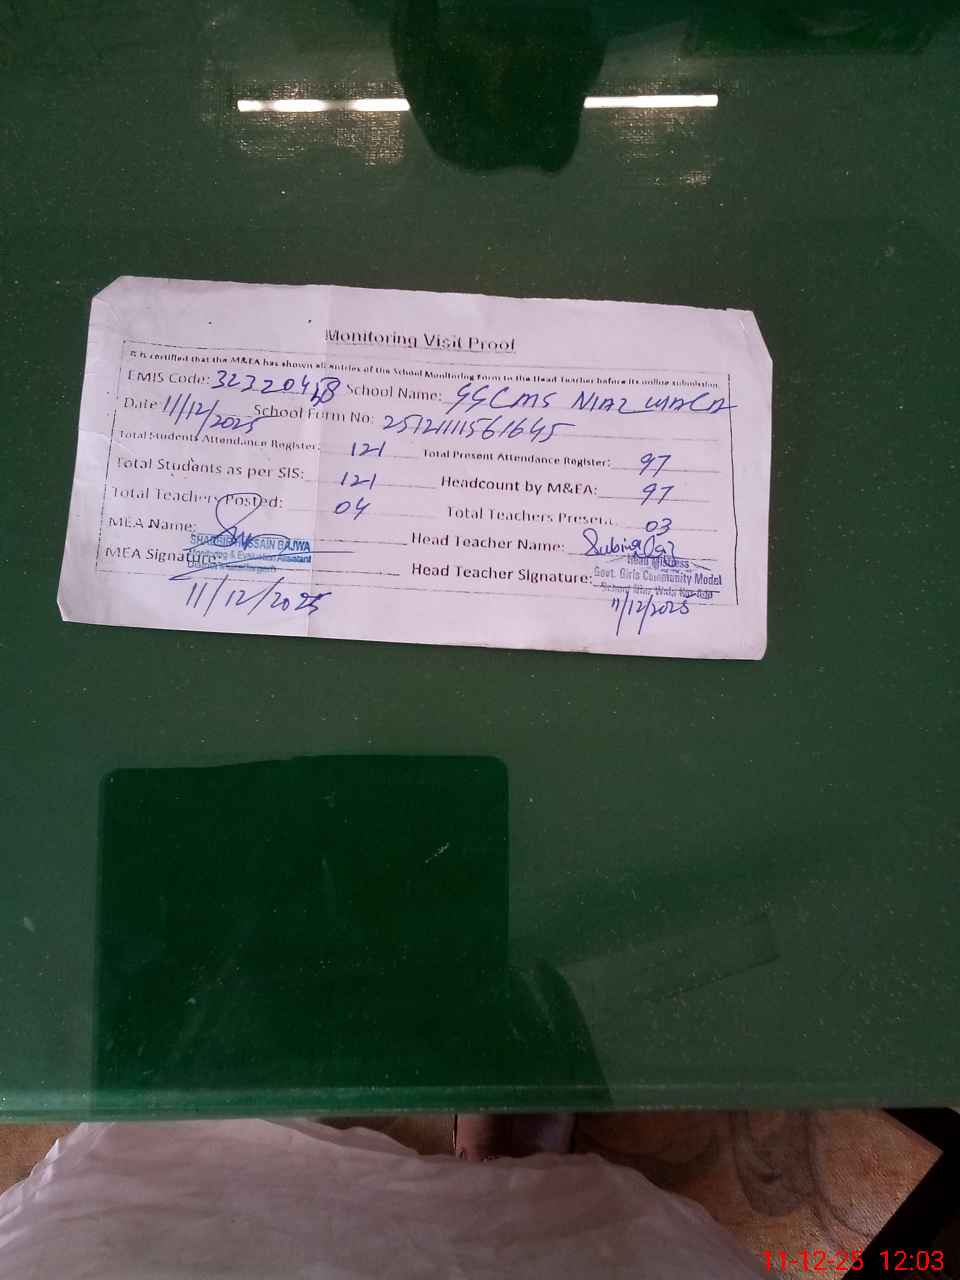 Monitoring Visit Proof
It is certified that the M&EA has shown all entries of the School Monitoring Form to the Head Teacher before its online submission.
EMIS Code: 323204 School Name: GGCMS NIAZ WALA
Date 11/12/2025 School Form No: 2512111561645
Total Students Attendance Register: 121 Total Present Attendance Register: 97
Total Students as per SIS: 121 Headcount by M&EA: 97
Total Teachers Posted: 04 Total Teachers Present: 03
MEA Name: Head Teacher Name: Rubina
SHABBIR HUSSAIN BAJWA
Monitoring & Evaluation Assistant
District
MEA Signature: Head Teacher Signature:
Head Mistress
Govt. Girls Community Model
School Niaz Wala
11/12/2025 11/12/2025
11-12-25 12:03